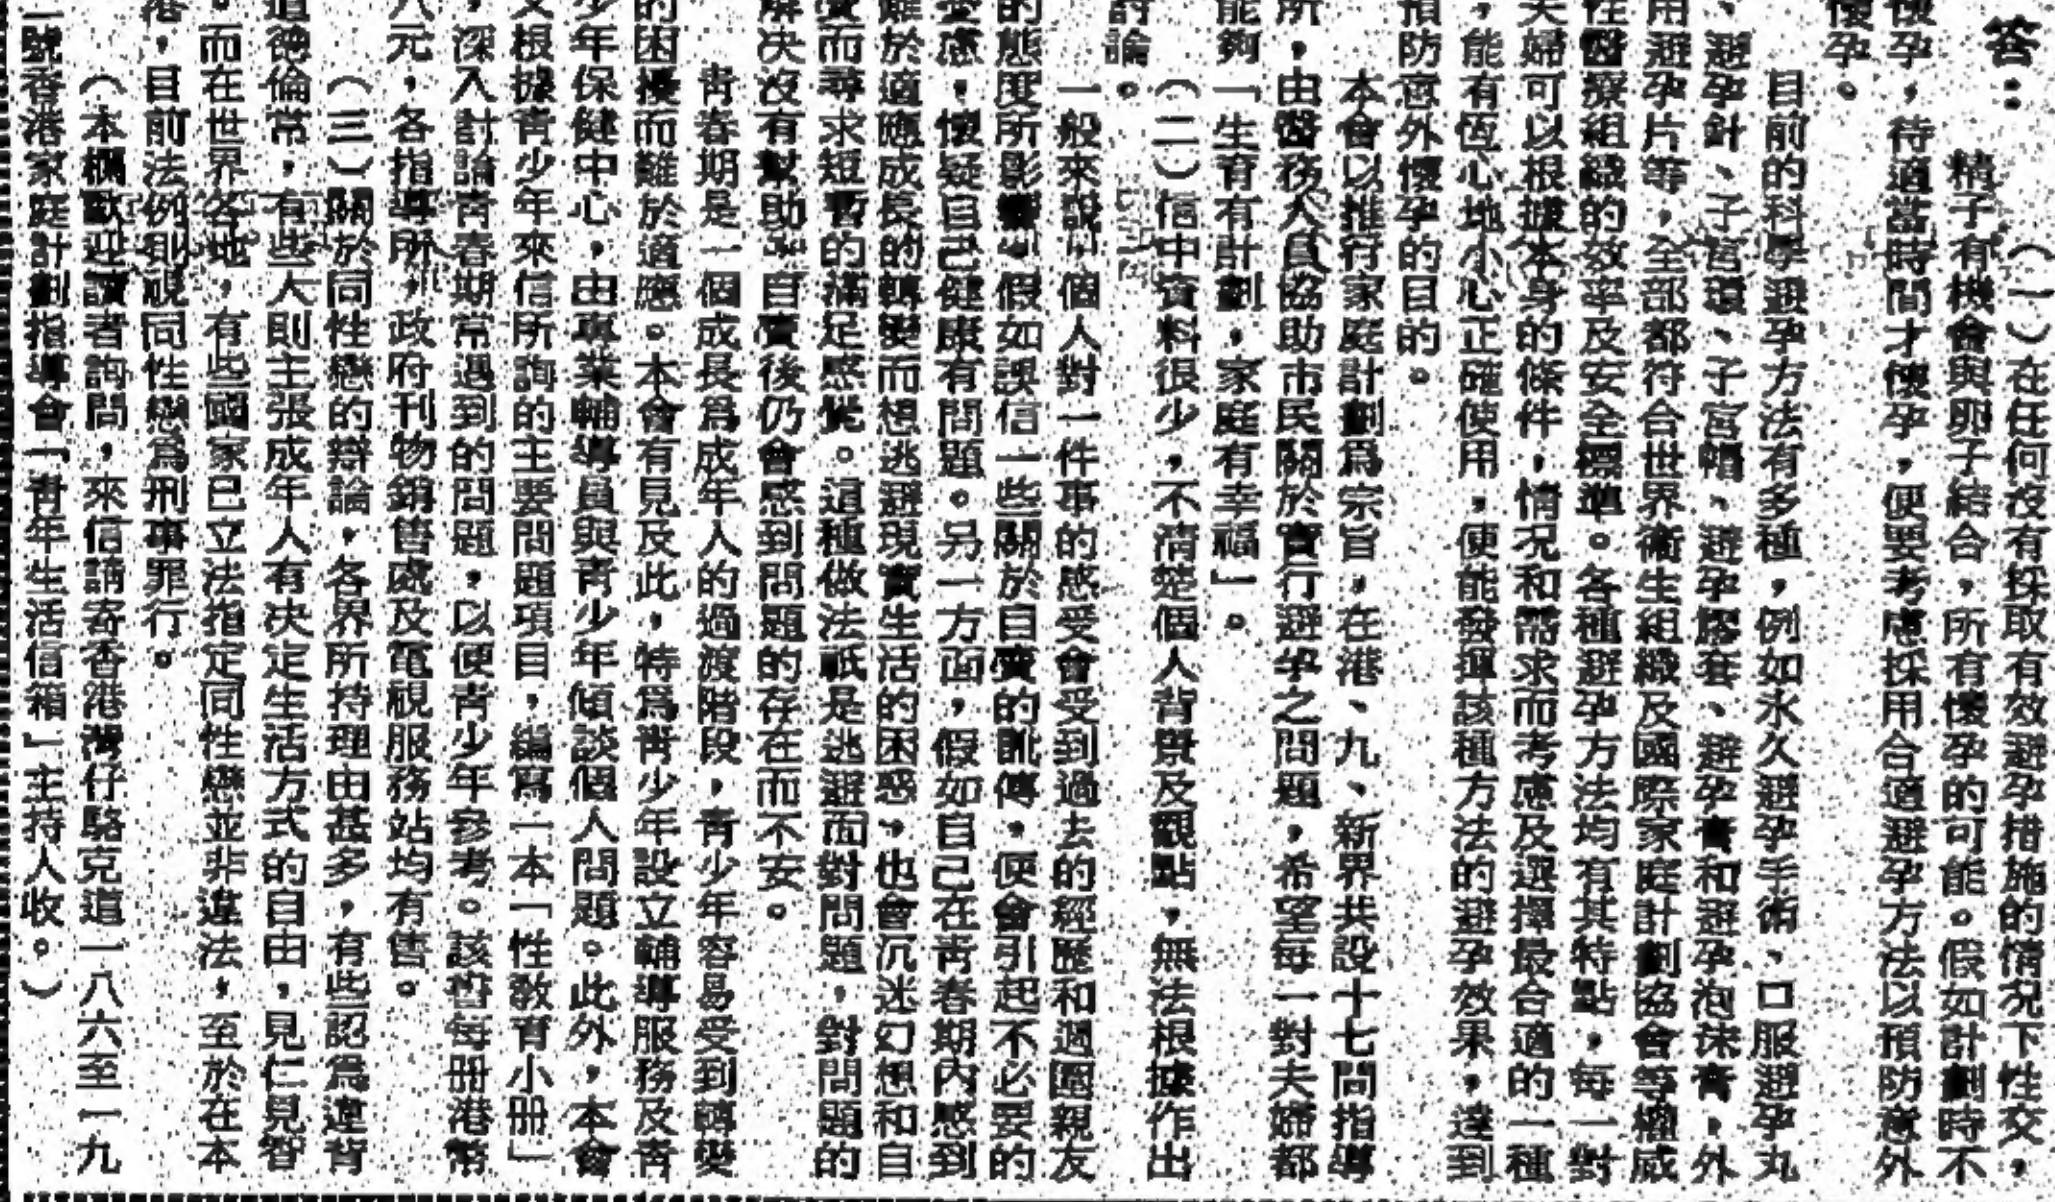 答：
（一）在任何沒有採取有效避孕措施的情况下性交，
精子有機會與卵子結合，所有懷孕的可能。假如計劃時不
懷孕，待適當時間才懷孕，便要考慮採用合適避孕方法以預防意外
懷孕。
目前的科學避孕方法有多種，例如永久避孕手術、口服避孕丸
、避孕針、子宮環、子宮帽、避孕膠套、避孕膏和避孕泡沫膏，外
用避孕片等，全部都符合世界衛生組織及國際家庭計劃協會等權威
性醫療組織的效率及安全標準。各種避孕方法均有其特點，每一對
夫婦可以根據本身的條件，情况和需求而考慮及選擇最合適的一種
，能有恆心地小心正確使用，便能發揮該種方法的避孕效果，達到
預防意外懷孕的目的。
本會以推行家庭計劃爲宗旨，在港、九、新界共設十七間指導
所，由醫務人員協助市民關於實行避孕之問題，希望每一對夫婦都
能夠「生育有計劃，家庭有幸福」。
（二）信中資料很少，不清楚個人背景及觀點，無法根據作出
討論。
一般來說，個人對一件事的感受會受到過去的經歷和週圍親友
的態度所影響，假如誤信一些關於自瀆的訛傳，便會引起不必要的
憂慮，懷疑自己健康有問題。另一方面，假如自己在青春期內感到
難於適應成長的轉變而想逃避現實生活的困惑，也會沉迷幻想和自
瀆而尋求短暫的滿足感覺。這種做法祇是逃避面對問題，對問題的
解决沒有幫助，自瀆後仍會感到問題的存在而不安。
青春期是一個成長爲成年人的過渡階段，青少年容易受到轉變
的困擾而難於適應。本會有見及此，特爲青少年設立輔導服務及青
少年保健中心，由專業輔導員與青少年傾談個人問題。此外，本會
又根據青少年來信所詢的主要問題項目，編寫一本「性敎育小册」
，深入討論青春期常遇到的問題，以便青少年參考。該書每册港幣
八元，各指導所，政府刊物銷售處及電視服務站均有售。
（三）關於同性戀的辯論，各界所持理由甚多，有些認爲違背
道德倫常，有些人則主張成年人有决定生活方式的自由，見仁見智
。而在世界各地，有些國家已立法指定同性戀並非違法，至於在本
港，目前法例則視同性戀爲刑事罪行。
（本欄歡迎讀者詢問，來信請寄香港灣仔駱克道一八六至一九
二號香港家庭計劃指導會「青年生活信箱」主持人收。）